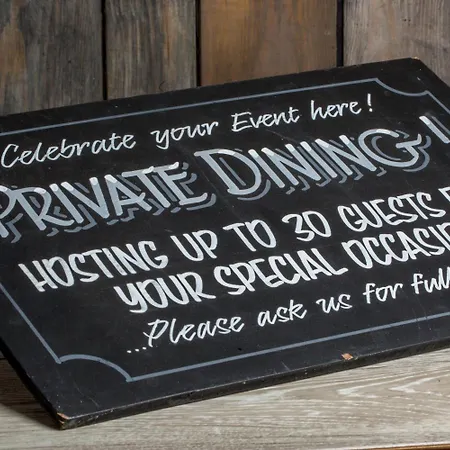 Celebrate your Event here!
PRIVATE DINING
HOSTING UP TO 30 GUESTS
YOUR SPECIAL
...Please ask us for